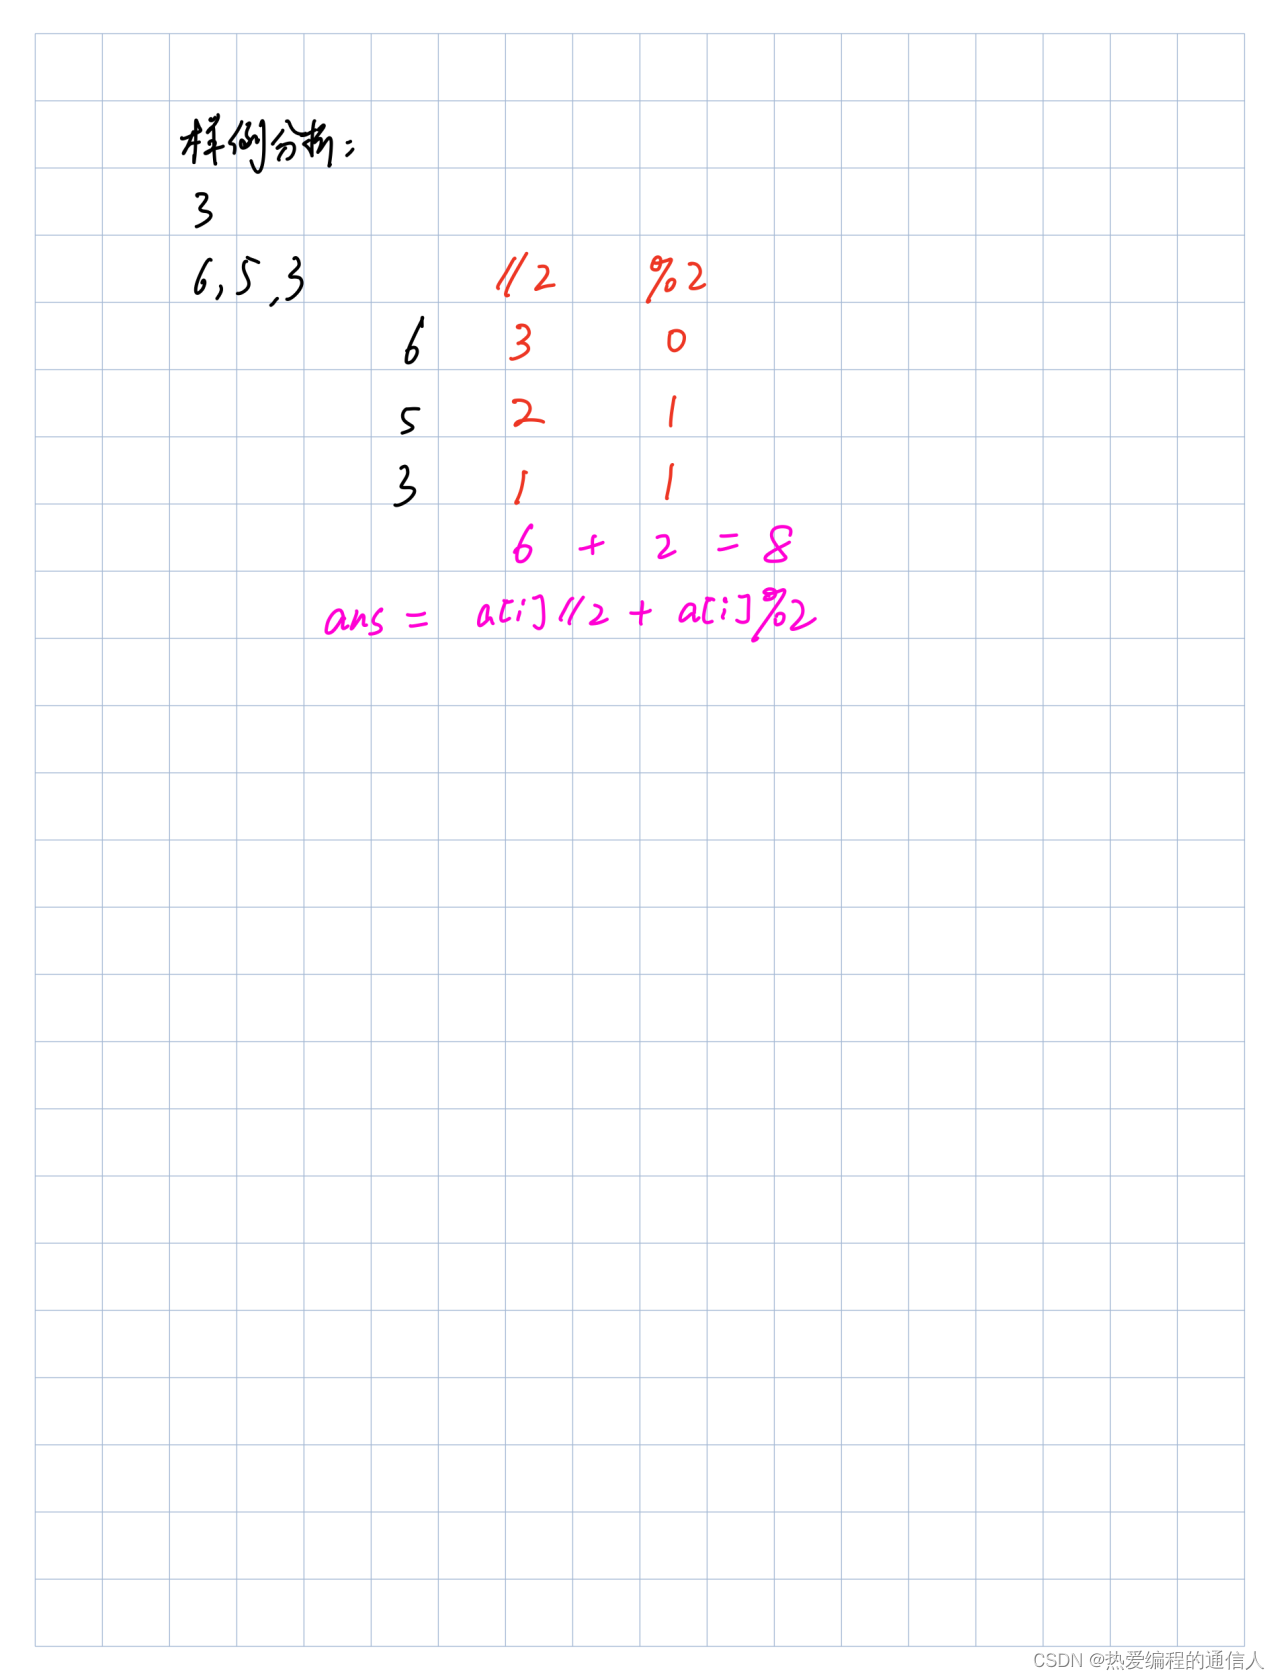 样例分析:
3
6,5,3 //2 %2
6 3 0
5 2 1
3 1 1
6 + 2 = 8
ans = a[i]//2 + a[i]%2
CSDN @热爱编程的通信人